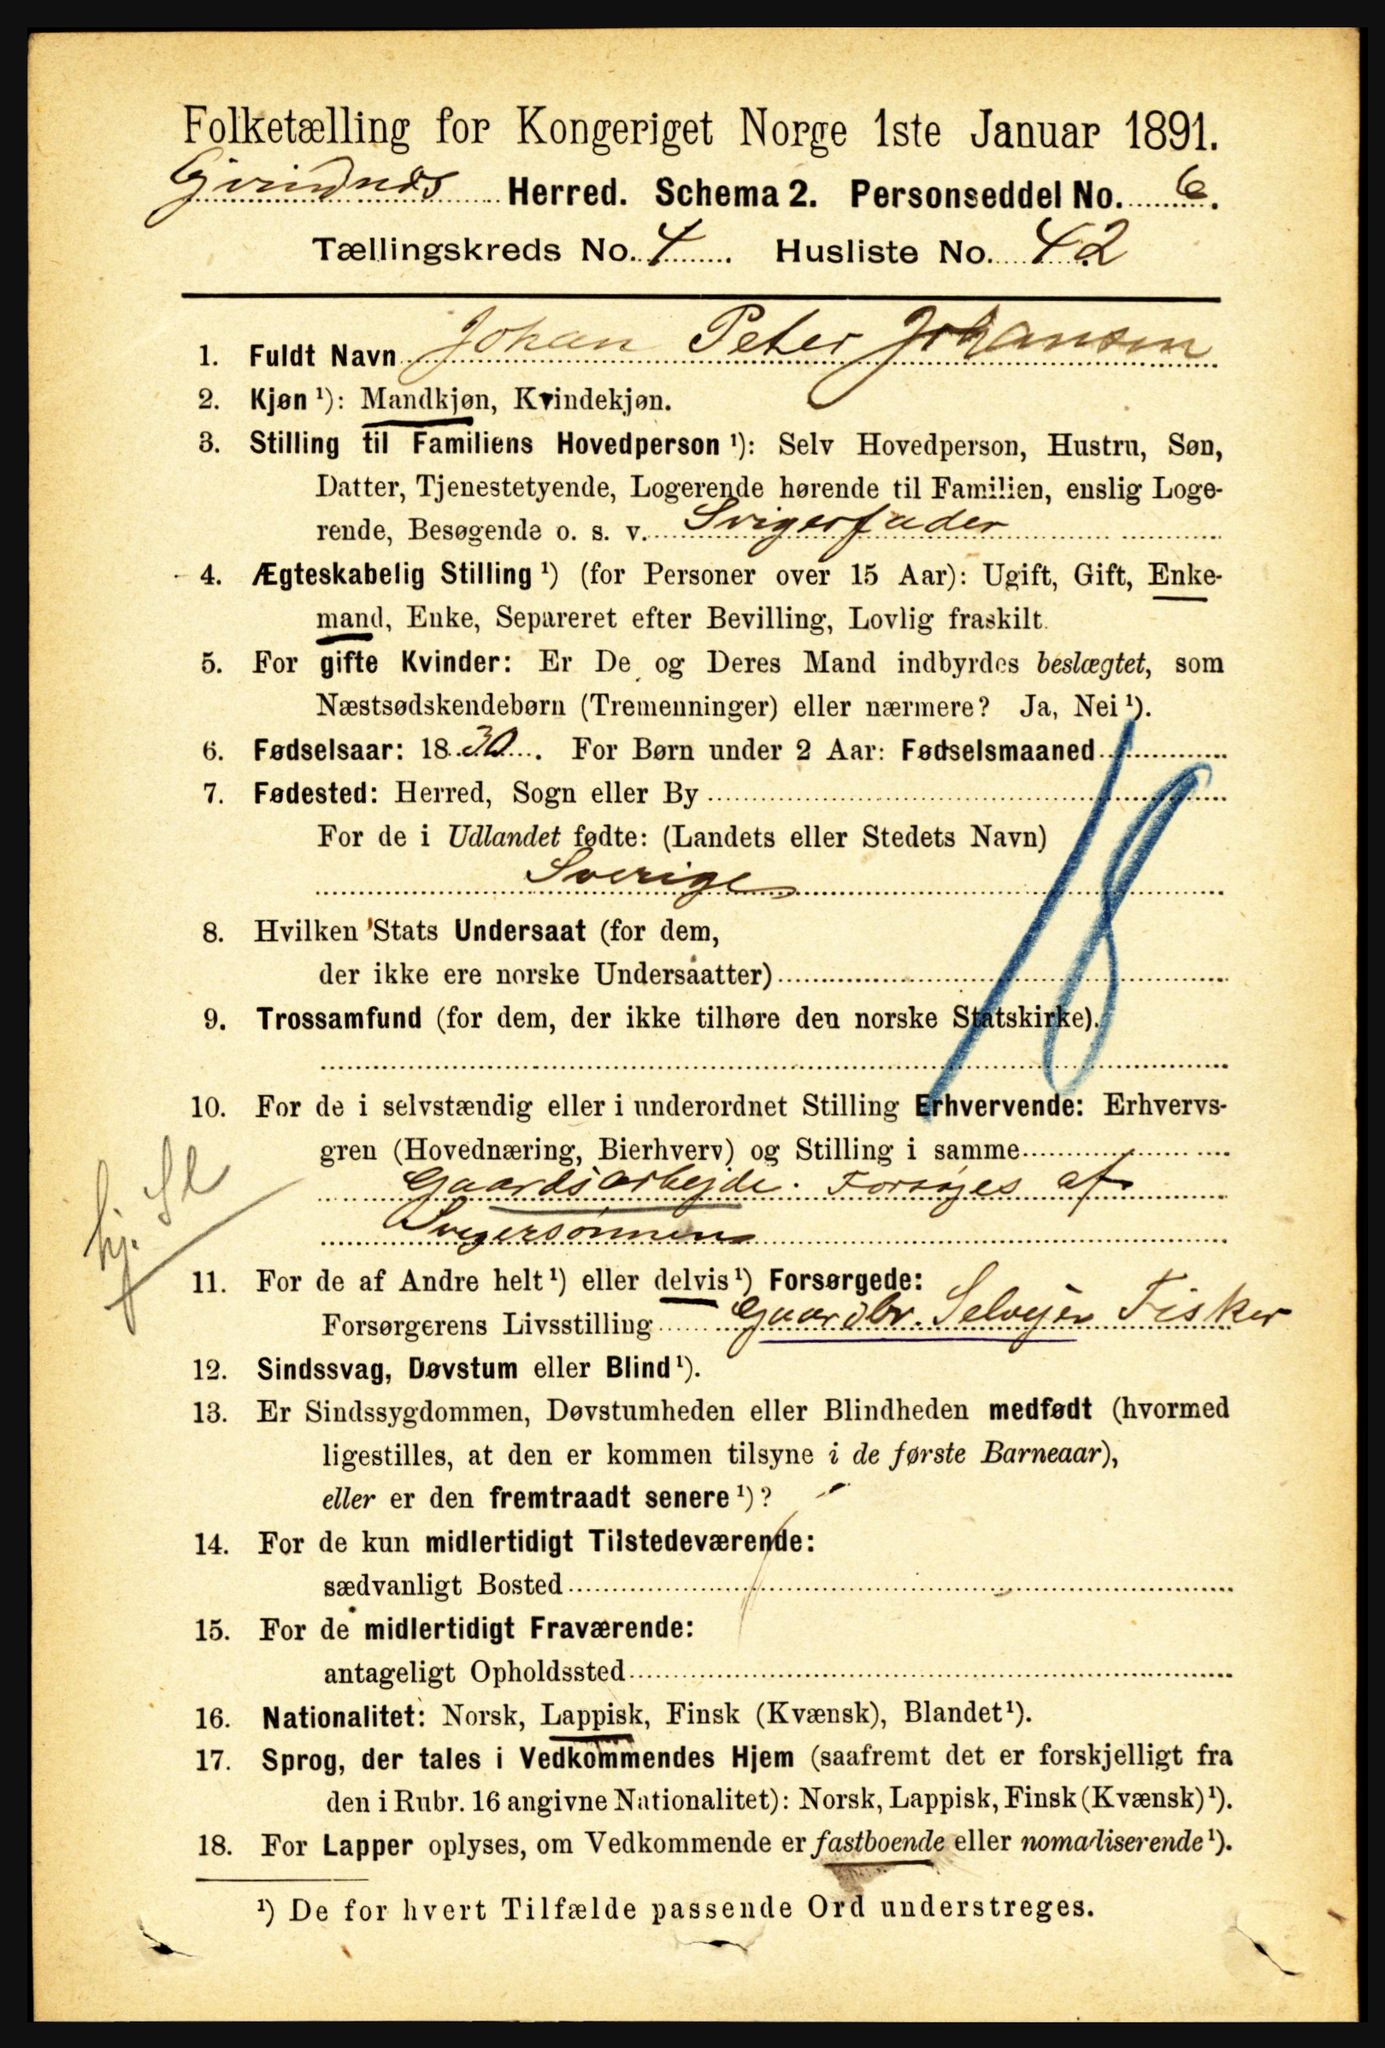 Folketælling for Kongeriget Norge 1ste Januar 1891.
Herred. Schema 2. Personseddel No. 6.
Tællingskreds No. 4. Husliste No. 42
1. Fuldt Navn Johan Peter Johansen
2. Kjøn ¹): Mandkjøn, Kvindekjøn.
3. Stilling til Familiens Hovedperson ¹): Selv Hovedperson, Hustru, Søn,
Datter, Tjenestetyende, Logerende hørende til Familien, enslig Loge-
rende, Besøgende o. s. v. Svigerfader
4. Ægteskabelig Stilling ¹) (for Personer over 15 Aar): Ugift, Gift, Enke-
mand, Enke, Separeret efter Bevilling, Lovlig fraskilt.
5. For gifte Kvinder: Er De og Deres Mand indbyrdes beslægtet, som
Næstsødskendebørn (Tremenninger) eller nærmere? Ja, Nei ¹).
6. Fødselsaar: 1830. For Børn under 2 Aar: Fødselsmaaned
7. Fødested: Herred, Sogn eller By
For de i Udlandet fødte: (Landets eller Stedets Navn)
Sverige
18
8. Hvilken Stats Undersaat (for dem,
der ikke ere norske Undersaatter)
9. Trossamfund (for dem, der ikke tilhøre den norske Statskirke).
10. For de i selvstændig eller i underordnet Stilling Erhvervende: Erhvervs-
gren (Hovednæring, Bierhverv) og Stilling i samme
Gaardsarbejde. Forsøges af
Svigersønnen
hj. Sl
11. For de af Andre helt ¹) eller delvis ¹) Forsørgede:
Forsørgerens Livsstilling Gaardbr. Selvejer Fisker
12. Sindssvag, Døvstum eller Blind ¹).
13. Er Sindssygdommen, Døvstumheden eller Blindheden medfødt (hvormed
ligestilles, at den er kommen tilsyne i de første Barneaar),
eller er den fremtraadt senere ¹)?
14. For de kun midlertidigt Tilstedeværende:
sædvanligt Bosted
15. For de midlertidigt Fraværende:
antageligt Opholdssted
16. Nationalitet: Norsk, Lappisk, Finsk (Kvænsk), Blandet ¹).
17. Sprog, der tales i Vedkommendes Hjem (saafremt det er forskjelligt fra
den i Rubr. 16 angivne Nationalitet): Norsk, Lappisk, Finsk (Kvænsk) ¹).
18. For Lapper oplyses, om Vedkommende er fastboende eller nomadiserende ¹).
¹) De for hvert Tilfælde passende Ord understreges.